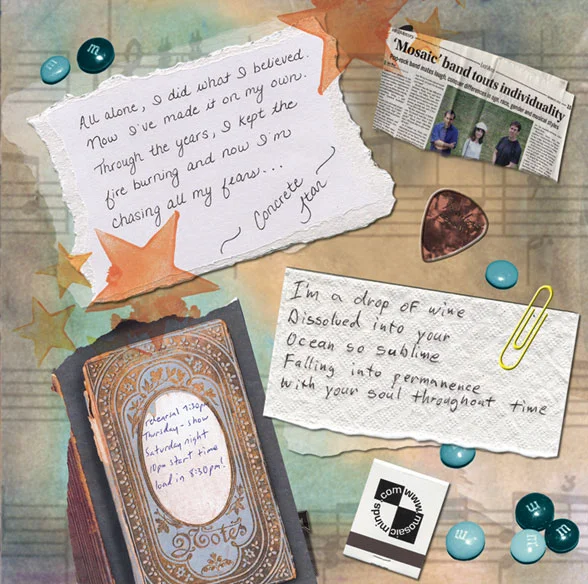 All alone, I did what I believed.
Now I've made it on my own.
Through the years, I kept the
fire burning and now I'm
chasing all my fears...
~ Concrete
Star ~
'Mosaic' band touts individuality
Pop-rock band makes laugh, conquer differences in age, race, gender and musical styles
I'm a drop of wine
Dissolved into your
Ocean so sublime
Falling into permanence
With your soul throughout time
rehearsal 7:30pm
Thursday - show
Saturday night
10pm start time
load in 8:30pm!
Notes
www.mosaicminds.com
m
m
m
m
m